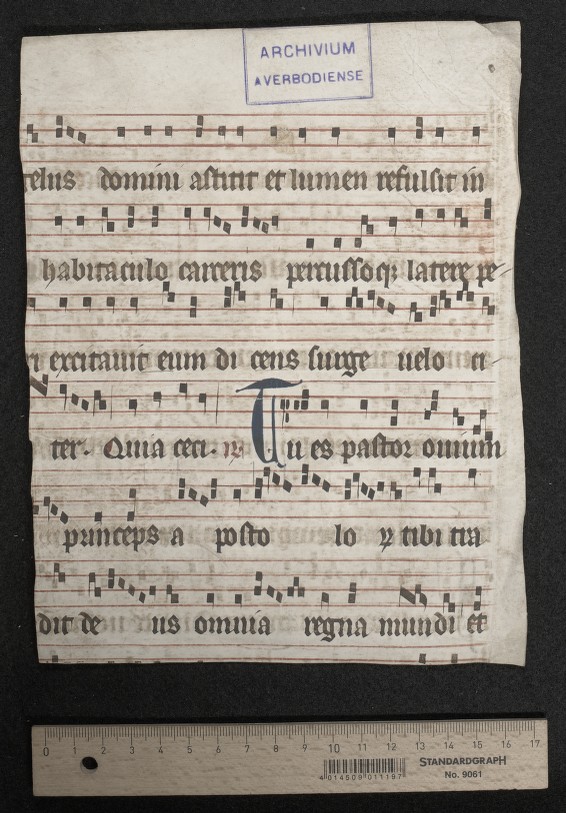 ARCHIVIUM
AVERBODIENSE
elus domini astitit et lumen refulsit in
habitaculo carceris percussoq; latere pe-
ri excitauit eum di cens surge uelo ci-
ter. Quia ceci. ℟ Tu es pastor omium
princeps a posto lo ⁊ tibi tra
dit de us omnia regna mundi et
0 1 2 3 4 5 6 7 8 9 10 11 12 13 14 15 16 17
4 014509 011197
STANDARDGRAPH
No. 9061